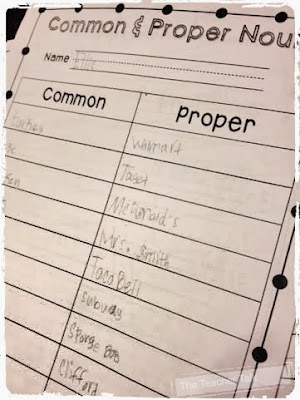 Common & Proper Nou
Name Ellie
Common Proper
Walmart
Taget
McDonald's
Mrs. Smith
Taco Bell
Subway
Sponge Bob
Clifford
The Teacher